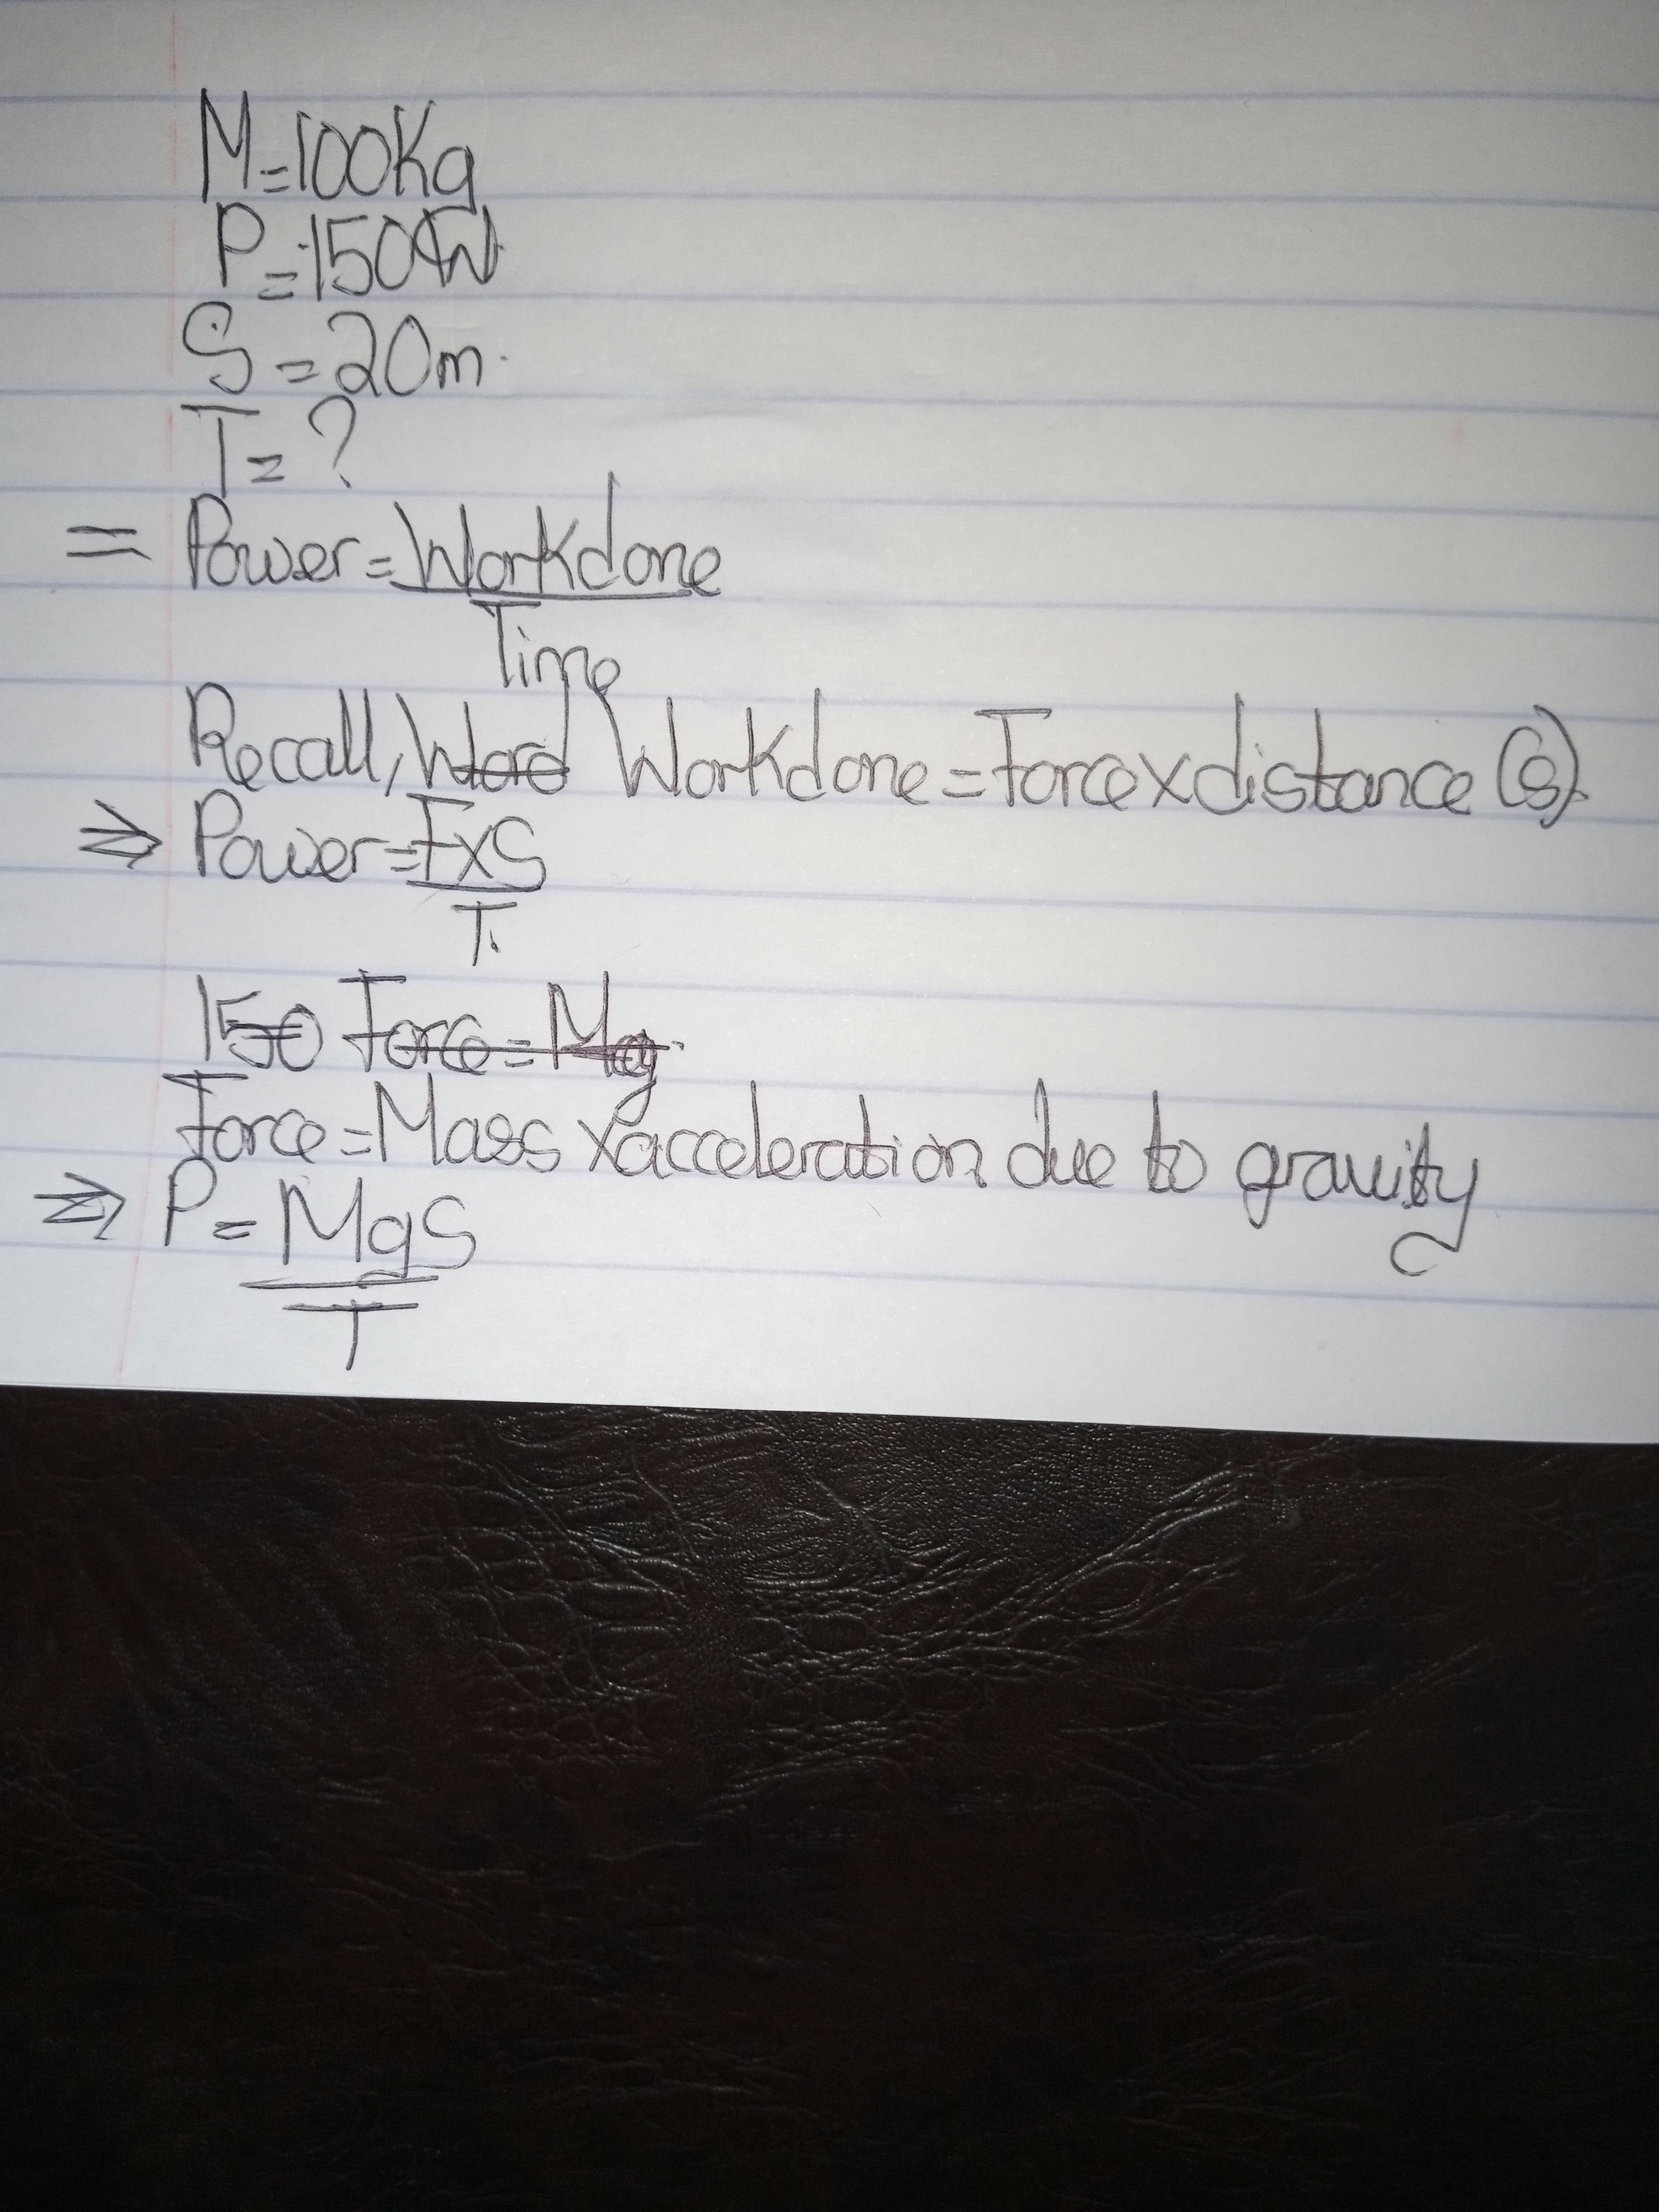 M=100Kg
P=150W
S=20m.
T=?
= Power=Workdone
Time
Recall, Word Workdone=Forcexdistance(s).
⇒ Power=FxS
T.
150 Force=Mg.
Force=Mass xacceleration due to gravity
⇒ P=MgS
T